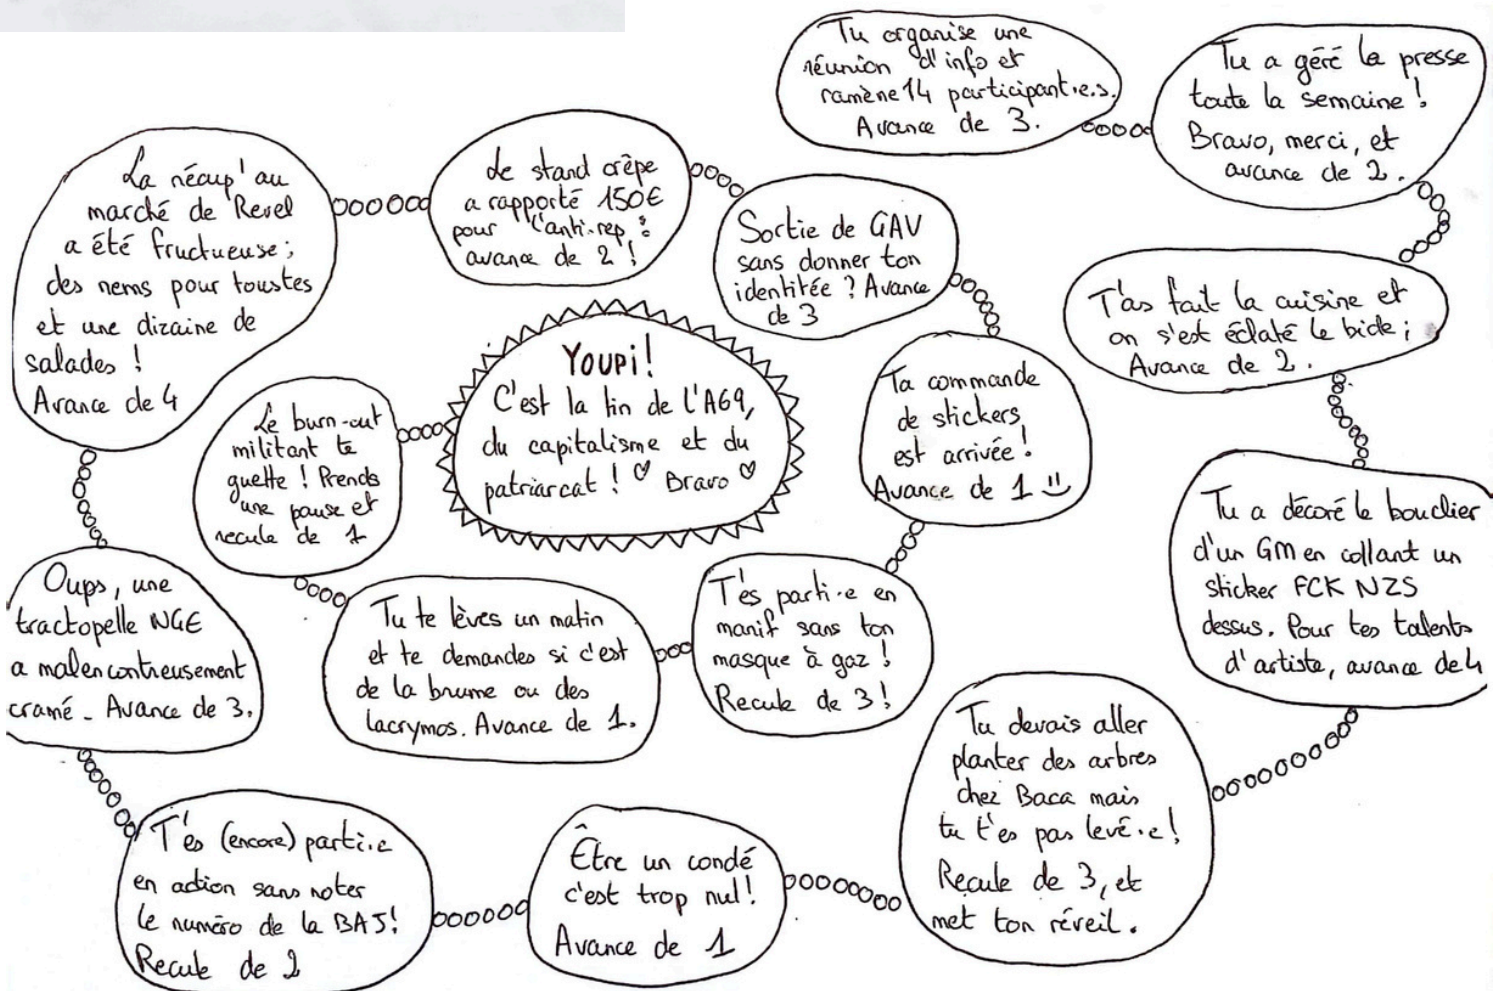 Tu organise une
réunion d'info et
ramène 14 participant.e.s.
Avance de 3.
Tu a géré la presse
toute la semaine !
Bravo, merci, et
avance de 2.
T'as fait la cuisine et
on s'est éclaté le bide ;
Avance de 2.
Tu a décoré le bouclier
d'un GM en collant un
sticker FCK NZS
dessus. Pour tes talents
d'artiste, avance de 4
Tu devais aller
planter des arbres
chez Baca mais
tu t'es pas levé.e !
Recule de 3, et
met ton réveil.
Être un condé
c'est trop nul !
Avance de 1
T'es (encore) parti.e
en action sans noter
le numéro de la BAJ !
Recule de 2
Oups, une
tractopelle NGE
a malencontreusement
cramé - Avance de 3.
La récup' au
marché de Revel
a été fructueuse ;
des nems pour toustes
et une dizaine de
salades !
Avance de 4
Le stand crêpe
a rapporté 150€
pour l'anti-rep :
avance de 2 !
Sortie de GAV
sans donner ton
identitée ? Avance
de 3
Ta commande
de stickers
est arrivée !
Avance de 1
T'es parti.e en
manif sans ton
masque à gaz !
Recule de 3 !
Tu te lèves un matin
et te demandes si c'est
de la brume ou des
lacrymos. Avance de 1.
Le burn-out
militant te
guette ! Prends
une pause et
recule de 1
YOUPI !
C'est la fin de L'A69,
du capitalisme et du
patriarcat ! ♡ Bravo ♡